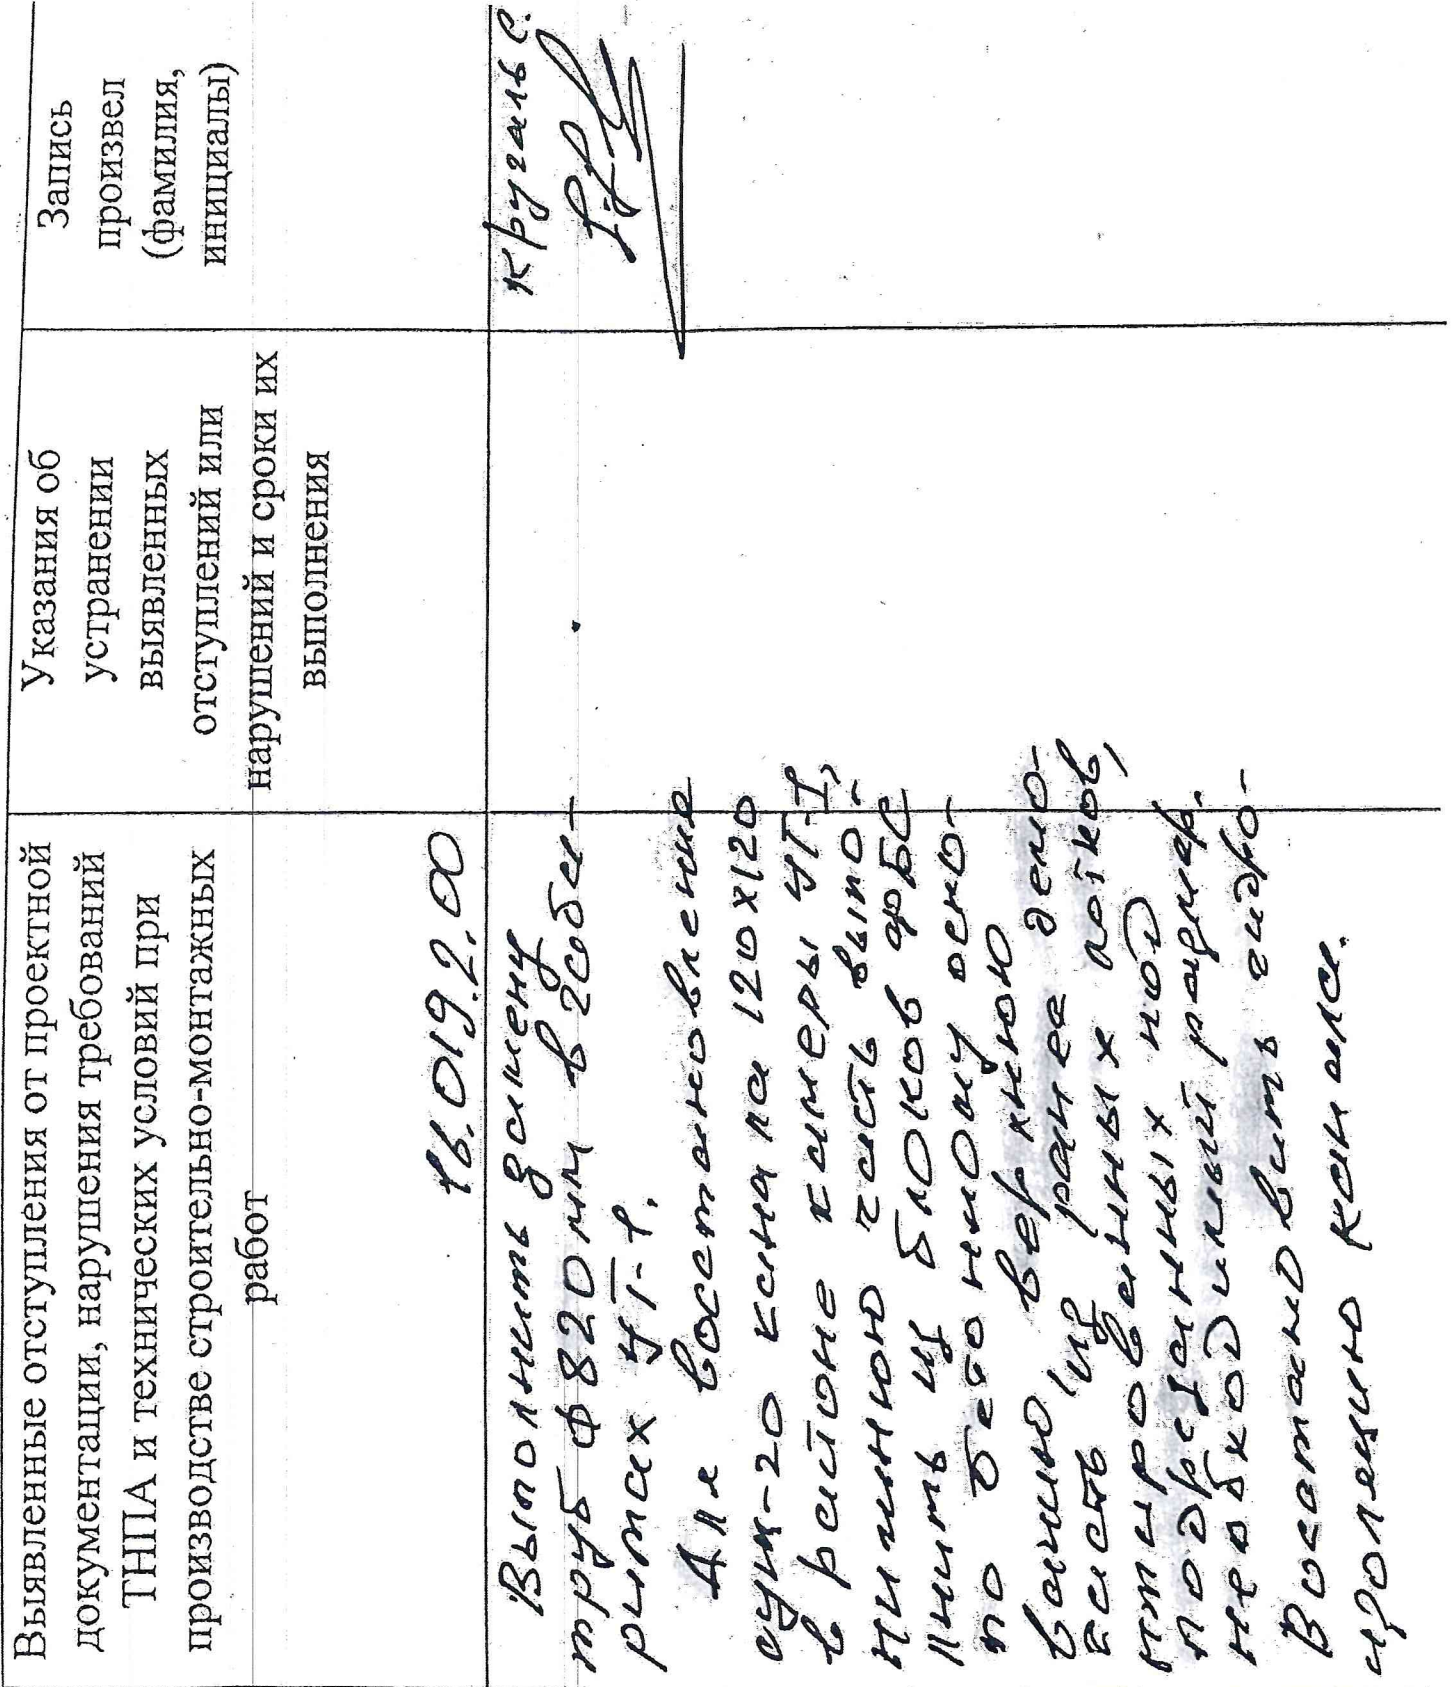 Выявленные отступления от проектной
документации, нарушения требований
ТНПА и технических условий при
производстве строительно-монтажных
работ
Указания об
устранении
выявленных
отступлений или
нарушений и сроки их
выполнения
Запись
произвел
(фамилия,
инициалы)
Выполнить замену
труб ф820мм в габа-
ритах УТ-1.
Для восстановление
сущ-го канала 120х120
в районе камеры УТ-1,
нижнюю часть выпо-
лнить из блоков ФБС
по бетонному осно-
ванию, верхнюю
часть из ранее демо-
нтированных лотков,
подрезанных под
необходимый размер.
Восстановить гидро-
изоляцию канала.
Кругаль С.